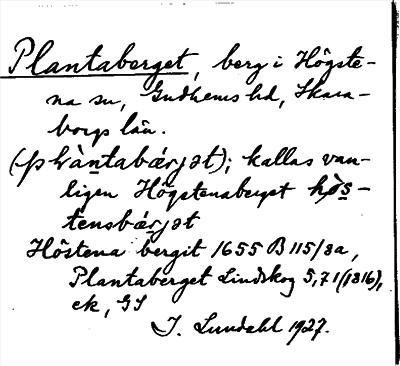 Plantaberget, berg i Högste-
na sn, Gudhems hd, Skara-
borgs län.
(plàntabǽrjət); kallas van-
ligen Högstenaberget hǿs-
tensbǽrjət
Höstena bergit 1655 B 115/8a,
Plantaberget Lindskog 5,71 (1816),
ek, GS
I. Lundahl 1927.